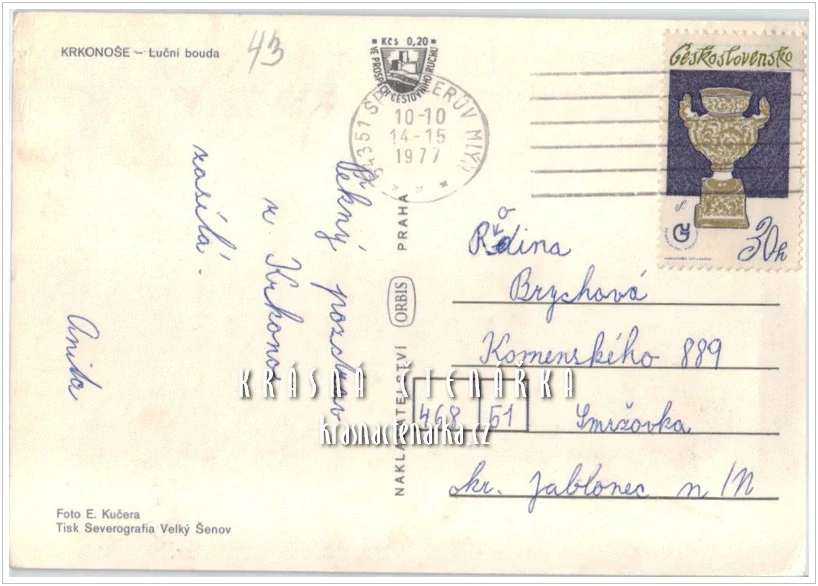 KRKONOŠE – Luční bouda
43
Kčs 0,20
VE PROSPĚCH CESTOVNÍHO RUCHU
54351 ŠPINDLERŮV MLÝN
10-10
14-15
1977
Československo
30h
Pěkný pozdrav
z Krkonoš
zasílá.
Anička
NAKLADATELSTVÍ ORBIS PRAHA
Rodina
Brychová
Komenského 889
468 51 Smržovka
okr. Jablonec n/N
Foto E. Kučera
Tisk Severografia Velký Šenov
KRÁSNÁ ČTENÁŘKA
krasnactenarka.cz